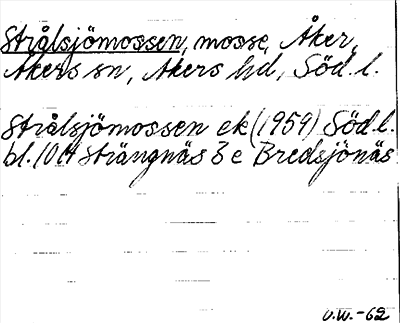 Strålsjömossen, mosse, Åker,
Åkers sn, Åkers hd, Söd. l.
Strålsjömossen ek (1959) Söd. l.
bl. 10 H Strängnäs 3 e Bredsjönäs
U.W.-62